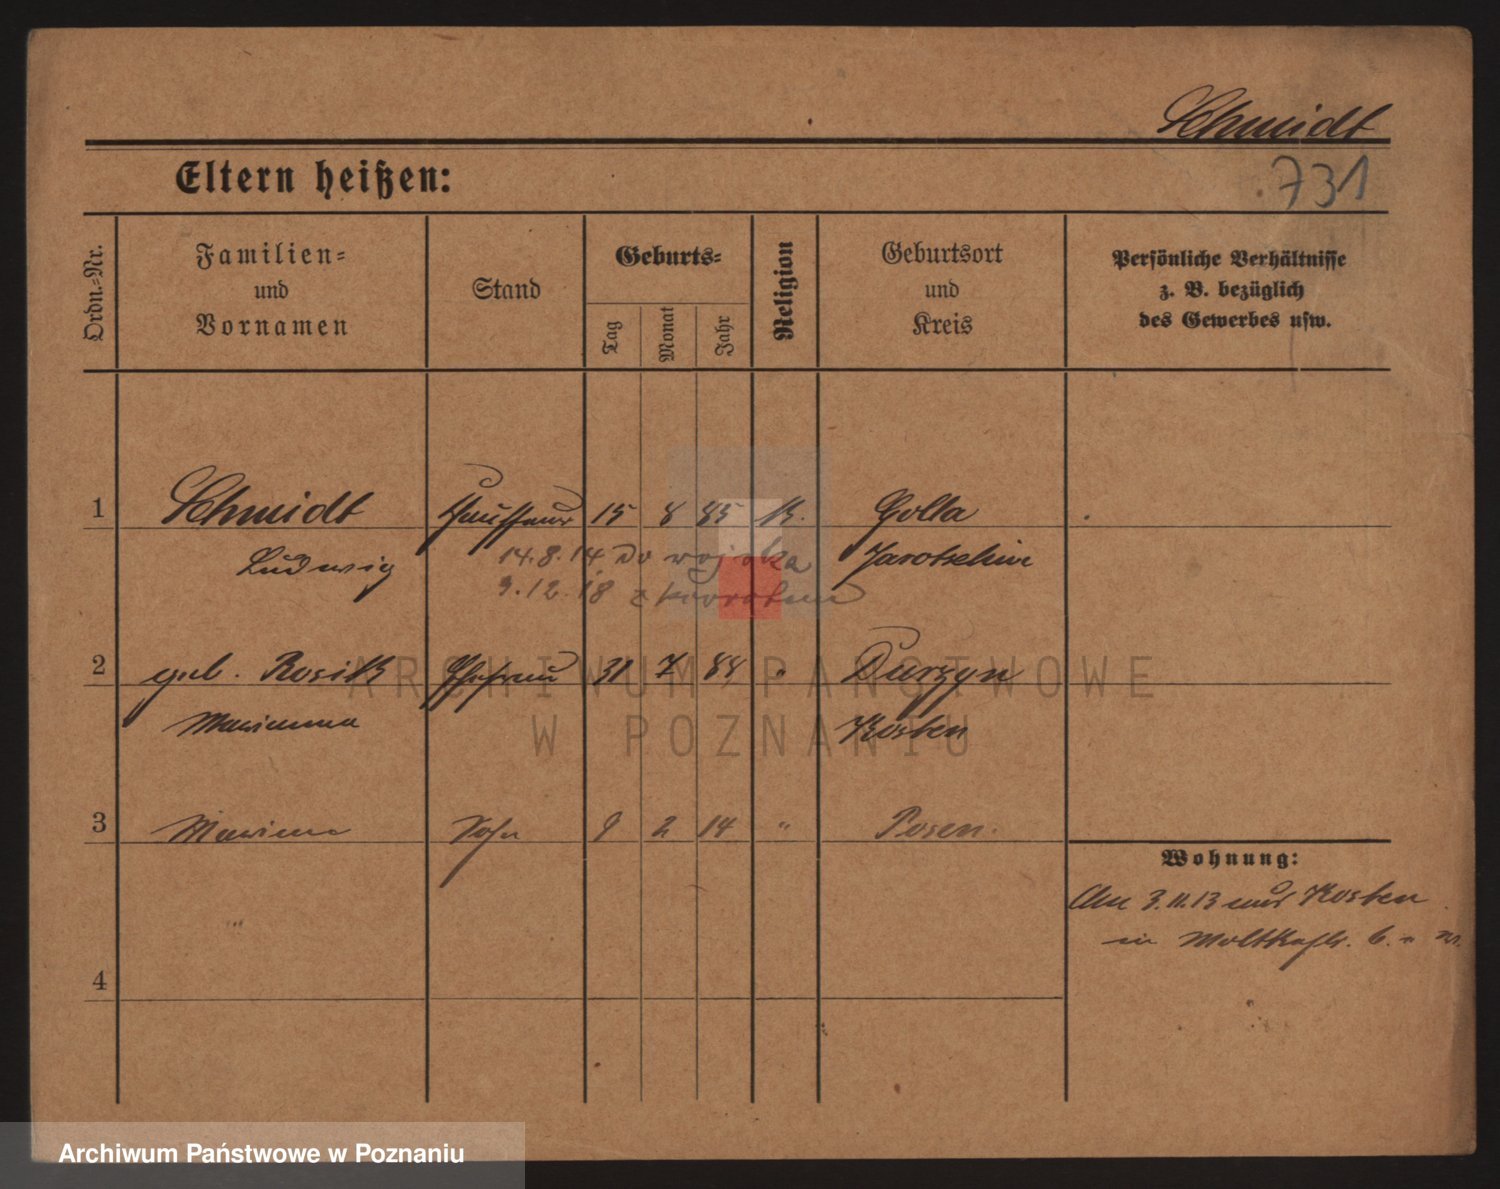 Schmidt
Eltern heißen:
731
Ordn.-Nr.
Familien- und Vornamen
Stand
Geburts-
Tag
Monat
Jahr
Religion
Geburtsort und Kreis
Persönliche Verhältnisse
z. B. bezüglich
des Gewerbes usw.
1 Schmidt Chauffeur 15 8 85 K. Golla
Ludwig Jarotschin
14.8.14 do wojska
9.12.18 z powrotem
2 geb. Rosik Ehefrau 31 7 88 " Durzyn
Marianna Kosten
3 Marian Sohn 9 2 14 " Posen.
Wohnung:
Am 3.11.13 aus Kosten
in Moltkestr. 6.
4
ARCHIWUM PAŃSTWOWE
W POZNANIU
Archiwum Państwowe w Poznaniu